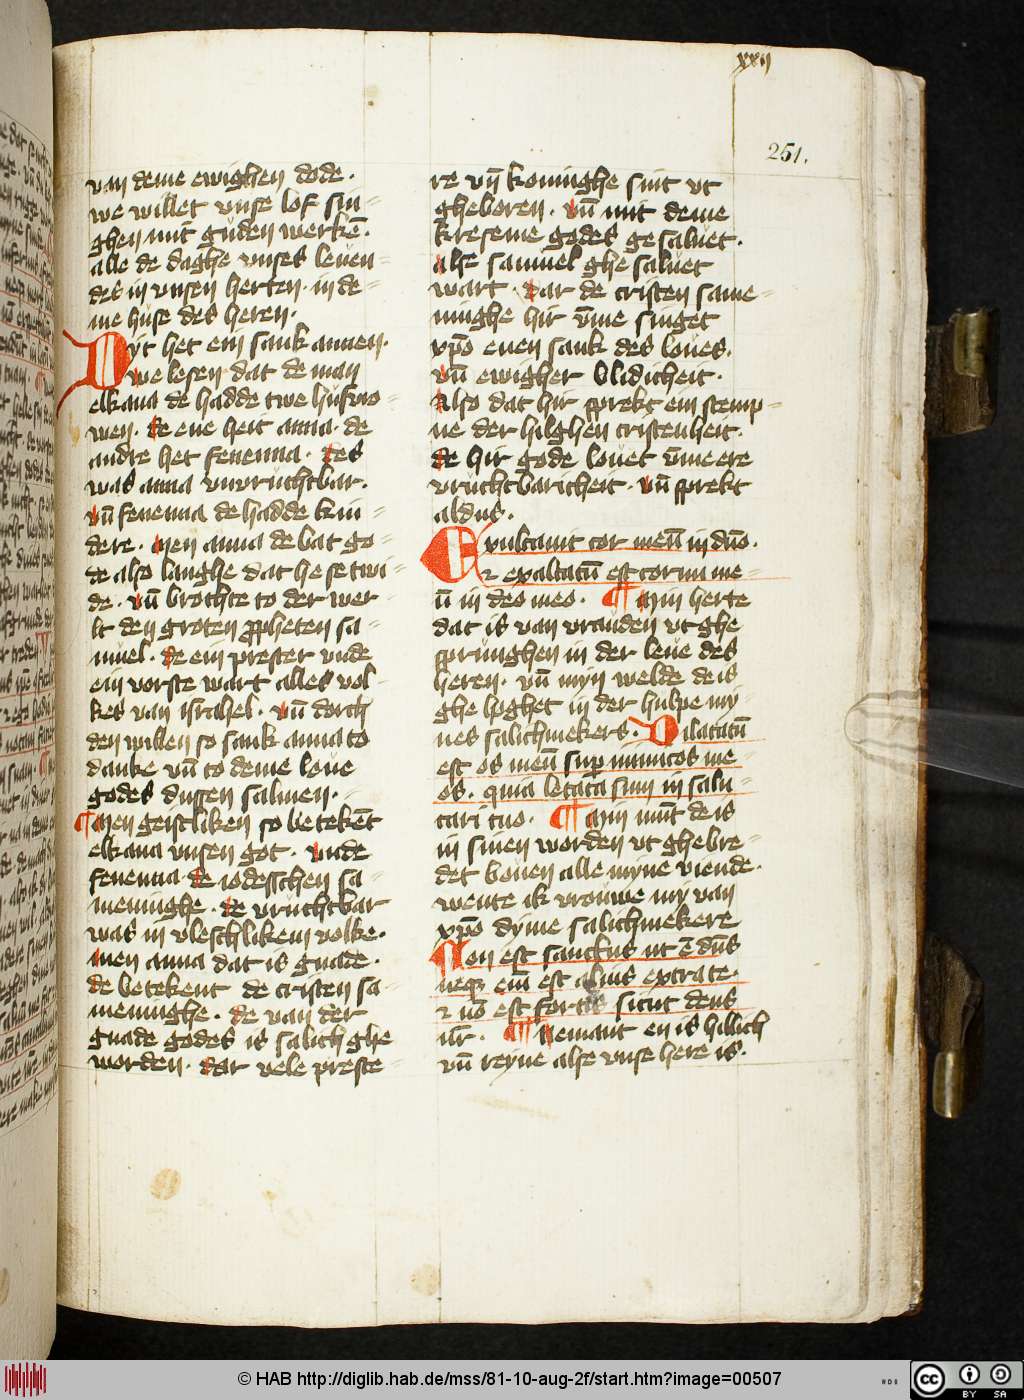 xxij
251.
van deme ewighen dode.
we willet vnse lof sin=
ghen mit guden werkē.
alle de daghe vnses leuen=
des in vnsen herten. in de=
me huse des heren.
Dyt het ein sank annen.
we lesen dat de man
elkana de hadde twe husuro=
wen. de ene heit anna. de
andre het fenenna. des
was anna vnvruchtbar.
vn̄ fenenna de hadde kin=
dere. men anna de bat go=
de also langhe dat he se twi=
de. vn̄ brochte to der wer=
lt den groten propheten sa=
muel. de ein prester vnde
ein vorste wart alles vol=
kes van israhel. vn̄ dorch
den willen so sank anna to
danke vn̄ to deme loue
godes dussen salmen.
¶ Men geistliken so betekēt
elkana vnsen got. vnde
fenenna de iodesschen sa=
meninghe. de vruchtbar
was in vleschlikem volke.
men anna dat is gnade.
de betekent de cristen sa=
meninghe. de van der
gnade godes is salich ghe
worden. dar vele preste=
re vn̄ koninghe sint vt
gheboren. vn̄ mit deme
kreseme godes gesaluet.
alse samuel ghesaluet
wart. dar de cristen same=
ninghe hir v̄me singet
xp̄o euen sank des loues.
vn̄ ewigher blidicheit.
Also dat hir sprekt ein stemp=
ne der hilghen cristenheit.
de hir gode louet v̄me ere
vruchtbaricheit. vn̄ sprekt
aldus.
Exultauit cor meū in dn̄o.
⁊ exaltatū est cornu me=
ū in deo meo. ¶ Myn herte
dat is van vrauden vt ghe
sprunghen in der leue des
heren. vn̄ myn welde de is
ghe hoghet in der hulpe my=
nes salichmekers. Dilatatū
est os meū sup inimicos me=
os. quia letata sum in salu=
tari tuo. ¶ Myn mūt de is
in sinen worden vt ghebre=
det bouen alle myne viende.
wente ik vrouwe my van
xp̄o dyme salichmekere
Non est sanctus ut ē dn̄s
neqꝫ eni̅ est alius extra te.
⁊ nō est fortis sicut deus
nr̄. ¶ Nemant en is hillich
vn̄ reyne alse vnse here is.
© HAB http://diglib.hab.de/mss/81-10-aug-2f/start.htm?image=00507
cc
BY SA